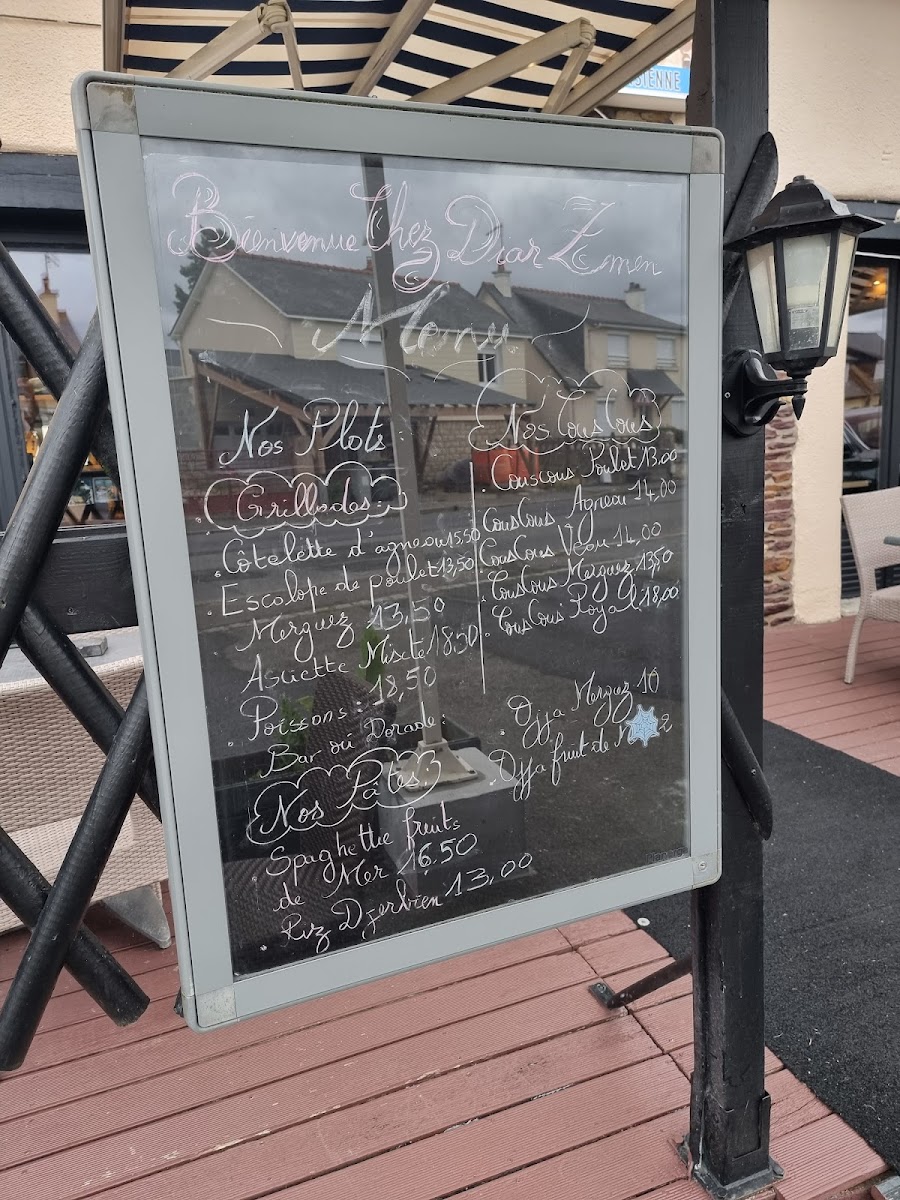 SIENNE
Bienvenue Chez Diar Zemen
Menu
Nos Plats
Grillades
Côtelette d'agneau 15,50
Escalope de poulet 13,50
Merguez 13,50
Assiette Mixte 18,50
Poissons : 18,50
Bar ou Dorade :
Nos Pates :
Spaghettie fruits
de Mer 16.50
Riz Djerbien 13,00
Nos Cous Cous
Couscous Poulet 13.00
CousCous Agneau 14,00
CousCous Veau 14,00
CousCous Merguez 13,50
CousCous Royal 18,00
Ojja Merguez 10
Ojja fruit de